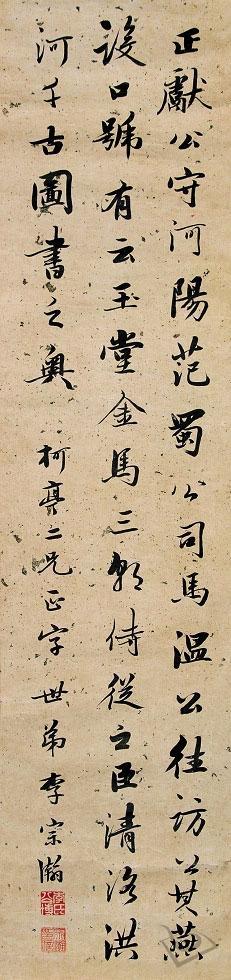 正獻公守河陽范蜀公司馬溫公往訪公具燕
設口號有云玉堂金馬三朝侍從之臣清洛洪
河千古圖書之奧 柯亭二兄正字 世弟李宗瀚